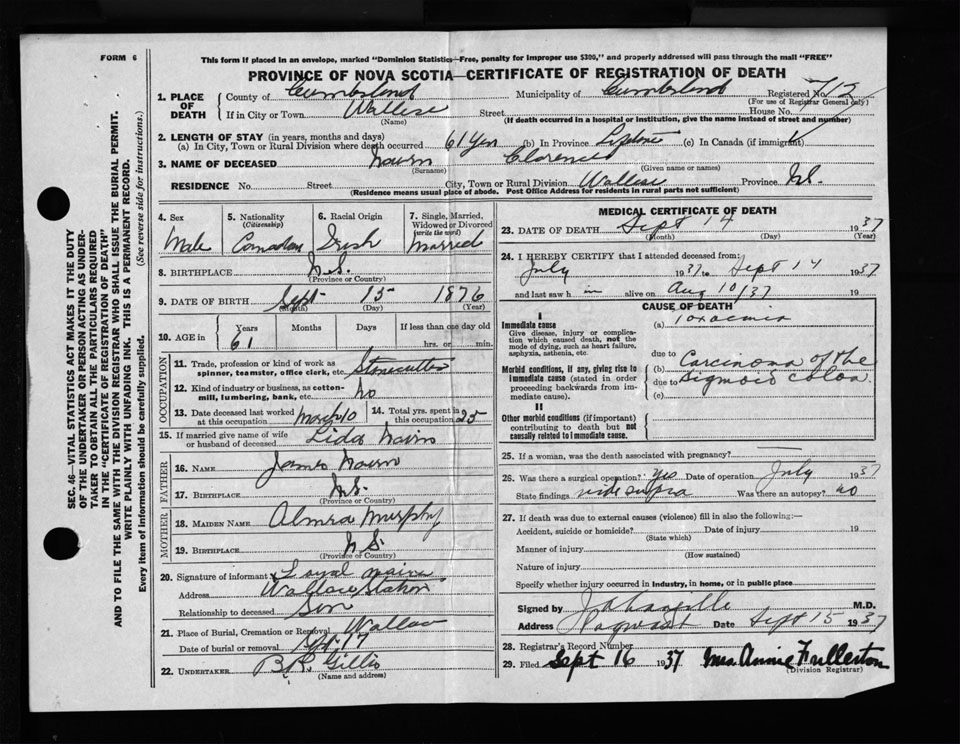 FORM 6
This form if placed in an envelope, marked "Dominion Statistics—Free, penalty for improper use $300," and properly addressed will pass through the mail "FREE"
PROVINCE OF NOVA SCOTIA—CERTIFICATE OF REGISTRATION OF DEATH
1. PLACE OF DEATH
County of Cumberland Municipality of Cumberland Registered No. 712
(For use of Registrar General only)
If in City or Town Wallace Street House No.
(Name) (If death occurred in a hospital or institution, give the name instead of street and number)
2. LENGTH OF STAY (in years, months and days)
(a) In City, Town or Rural Division where death occurred 61 Yrs (b) In Province Lifetime (c) In Canada (if immigrant)
3. NAME OF DECEASED Nairn Clarence
(Surname) (Given name or names)
RESIDENCE No. Street City, Town or Rural Division Wallace Province N.S.
(Residence means usual place of abode. Post Office Address for residents in rural parts not sufficient)
4. Sex Male
5. Nationality (Citizenship) Canadian
6. Racial Origin Irish
7. Single, Married, Widowed or Divorced (write the word) Married
8. BIRTHPLACE N.S.
(Province or Country)
9. DATE OF BIRTH Sept 15 1876
(Month) (Day) (Year)
10. AGE in Years 61 Months Days If less than one day old
hrs. or min.
OCCUPATION
11. Trade, profession or kind of work as spinner, teamster, office clerk, etc. Stonecutter
12. Kind of industry or business, as cotton-mill, lumbering, bank, etc. No
13. Date deceased last worked at this occupation March 10
14. Total yrs. spent in this occupation 25
15. If married give name of wife or husband of deceased Lida Nairn
FATHER
16. NAME James Nairn
17. BIRTHPLACE N.S.
(Province or Country)
MOTHER
18. MAIDEN NAME Almra Murphy
19. BIRTHPLACE N.S.
(Province or Country)
20. Signature of informant Loyal Nairn
Address Wallace Station
Relationship to deceased Son
21. Place of Burial, Cremation or Removal Wallace
Date of burial or removal Sept 17
22. UNDERTAKER B.R. Gillis
(Name and address)
MEDICAL CERTIFICATE OF DEATH
23. DATE OF DEATH Sept 14 1937
(Month) (Day) (Year)
24. I HEREBY CERTIFY that I attended deceased from:
July 1937 to Sept 14 1937
and last saw h im alive on Aug 10/37 19
CAUSE OF DEATH
I
Immediate cause
Give disease, injury or complication which caused death, not the mode of dying, such as heart failure, asphyxia, asthenia, etc.
(a) Toxaemia
due to
Morbid conditions, if any, giving rise to immediate cause (stated in order proceeding backwards from immediate cause).
(b) Carcinoma of the
due to sigmoid colon.
(c)
II
Other morbid conditions (if important) contributing to death but not causally related to immediate cause.
25. If a woman, was the death associated with pregnancy?
26. Was there a surgical operation? Yes Date of operation July 1937
State findings vide supra Was there an autopsy? no
27. If death was due to external causes (violence) fill in also the following:—
Accident, suicide or homicide? Date of injury 19
(State which)
Manner of injury
(How sustained)
Nature of injury
Specify whether injury occurred in industry, in home, or in public place
Signed by M.D.
Address Pugwash Date Sept 15 1937
28. Registrar's Record Number
29. Filed Sept 16 1937 Mrs. Annie Fullerton
(Division Registrar)
SEC. 46—VITAL STATISTICS ACT MAKES IT THE DUTY
OF THE UNDERTAKER OR PERSON ACTING AS UNDER-
TAKER TO OBTAIN ALL THE PARTICULARS REQUIRED
IN THE "CERTIFICATE OF REGISTRATION OF DEATH"
AND TO FILE THE SAME WITH THE DIVISION REGISTRAR WHO SHALL ISSUE THE BURIAL PERMIT.
WRITE PLAINLY WITH UNFADING INK. THIS IS A PERMANENT RECORD.
Every item of Information should be carefully supplied. (See reverse side for instructions.)